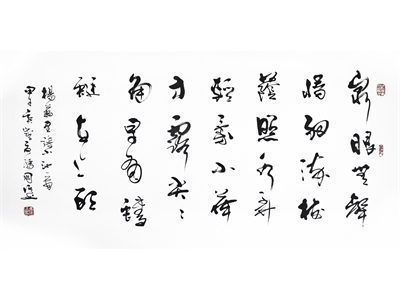 泉眼無聲
惜細流樹
蔭照水愛
晴柔小荷
才露尖々
角早有蜻
蜓立上頭
楊萬里詩小池一首
甲午